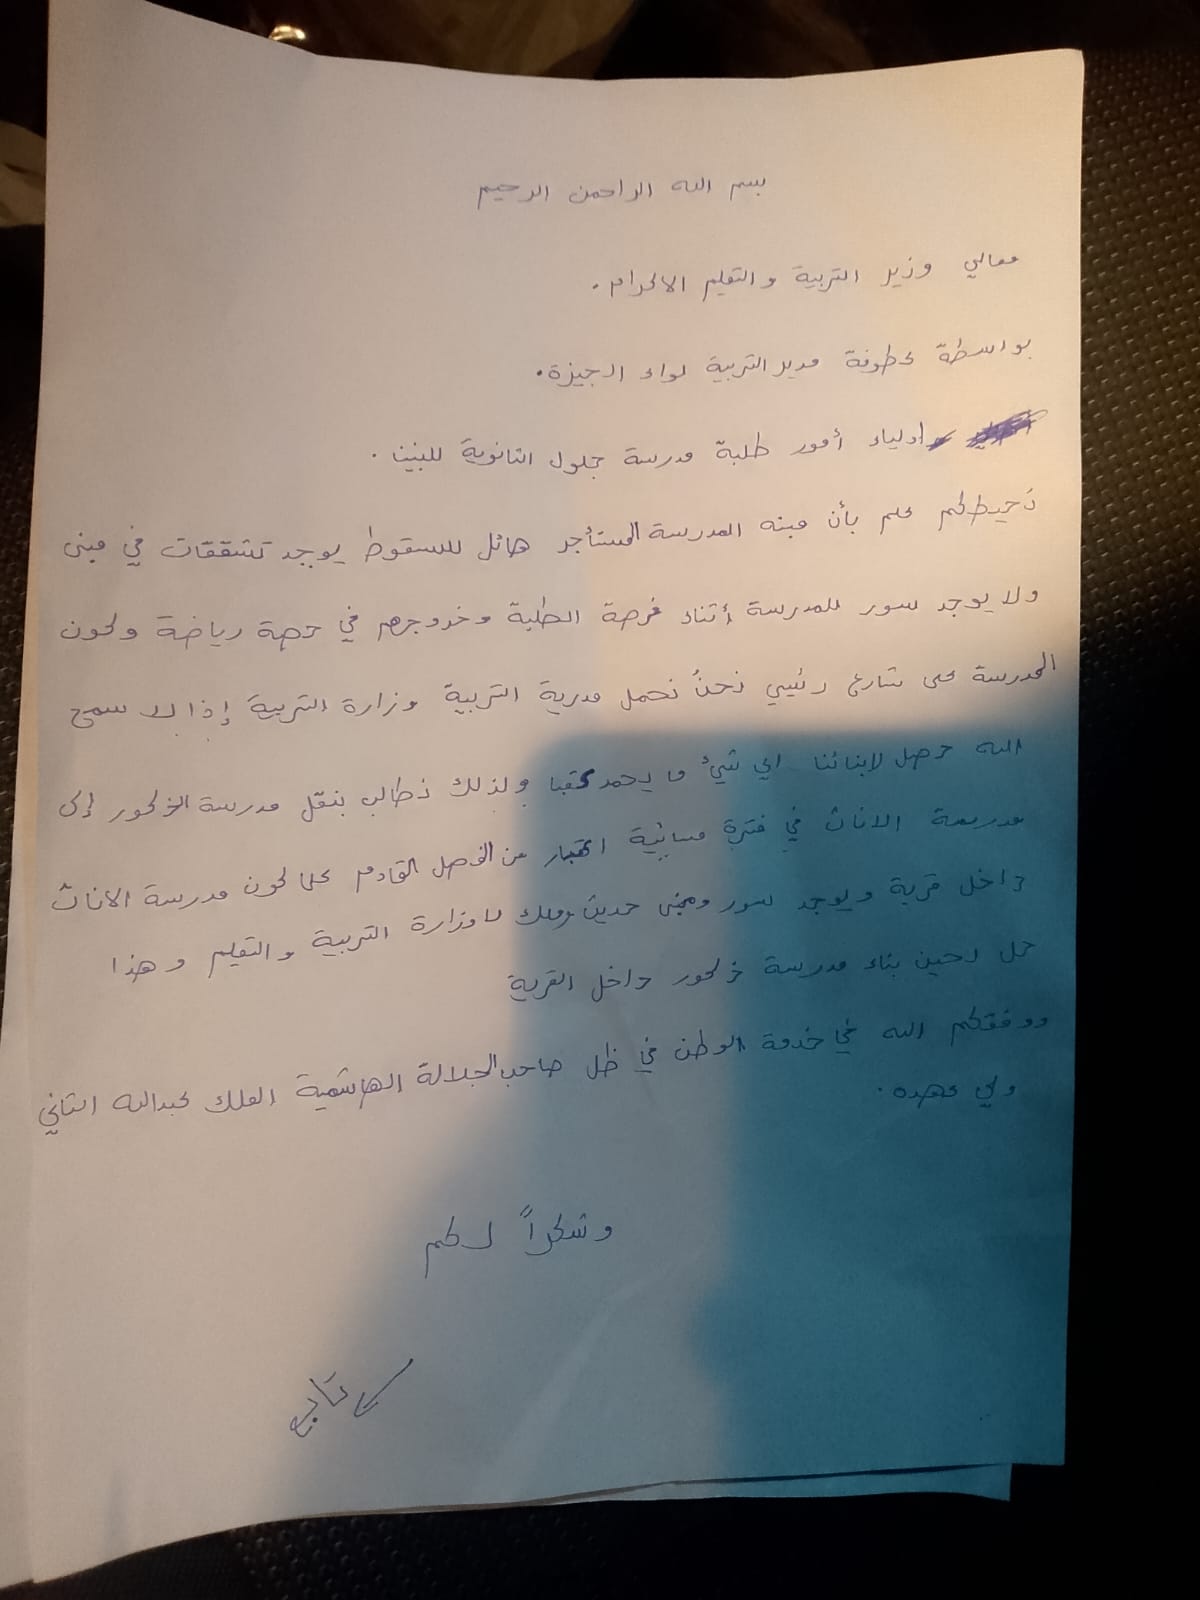 بسم الله الراحمن الرحيم
معالي وزير التربية والتعليم الاكرام.
بواسطة عطوفة مدير التربية لواء الجيزة.
اولياء أمور طلبة مدرسة جلول الثانوية للبنين.
نحيطكم علم بأن مبنه المدرسة المستأجر هائل للسقوط يوجد تشققات في مبنى
ولا يوجد سور للمدرسة أثناء فرصة الطلبة وخروجهم في حصة رياضة ولكون
المدرسة على شارع رئيسي نحن نحمل مديرية التربية وزارة التربية إذا لا سمح
الله حصل لابنائنا اي شيء ما يحمد عقبا ولذلك نطالب بنقل مدرسة الذكور إلى
مدرسة الاناث في فترة مسائية اعتبار من الفصل القادم علما كون مدرسة الاناث
داخل قرية ويوجد سور ومبنى حديث وملك لا وزارة التربية والتعليم وهذا
حل لحين بناء مدرسة ذكور داخل القرية
ووفقكم الله في خدمة الوطن في ظل صاحب الجلالة الهاشمية الملك عبدالله الثاني
ولي عهده.
وشكراً لكم
تابع